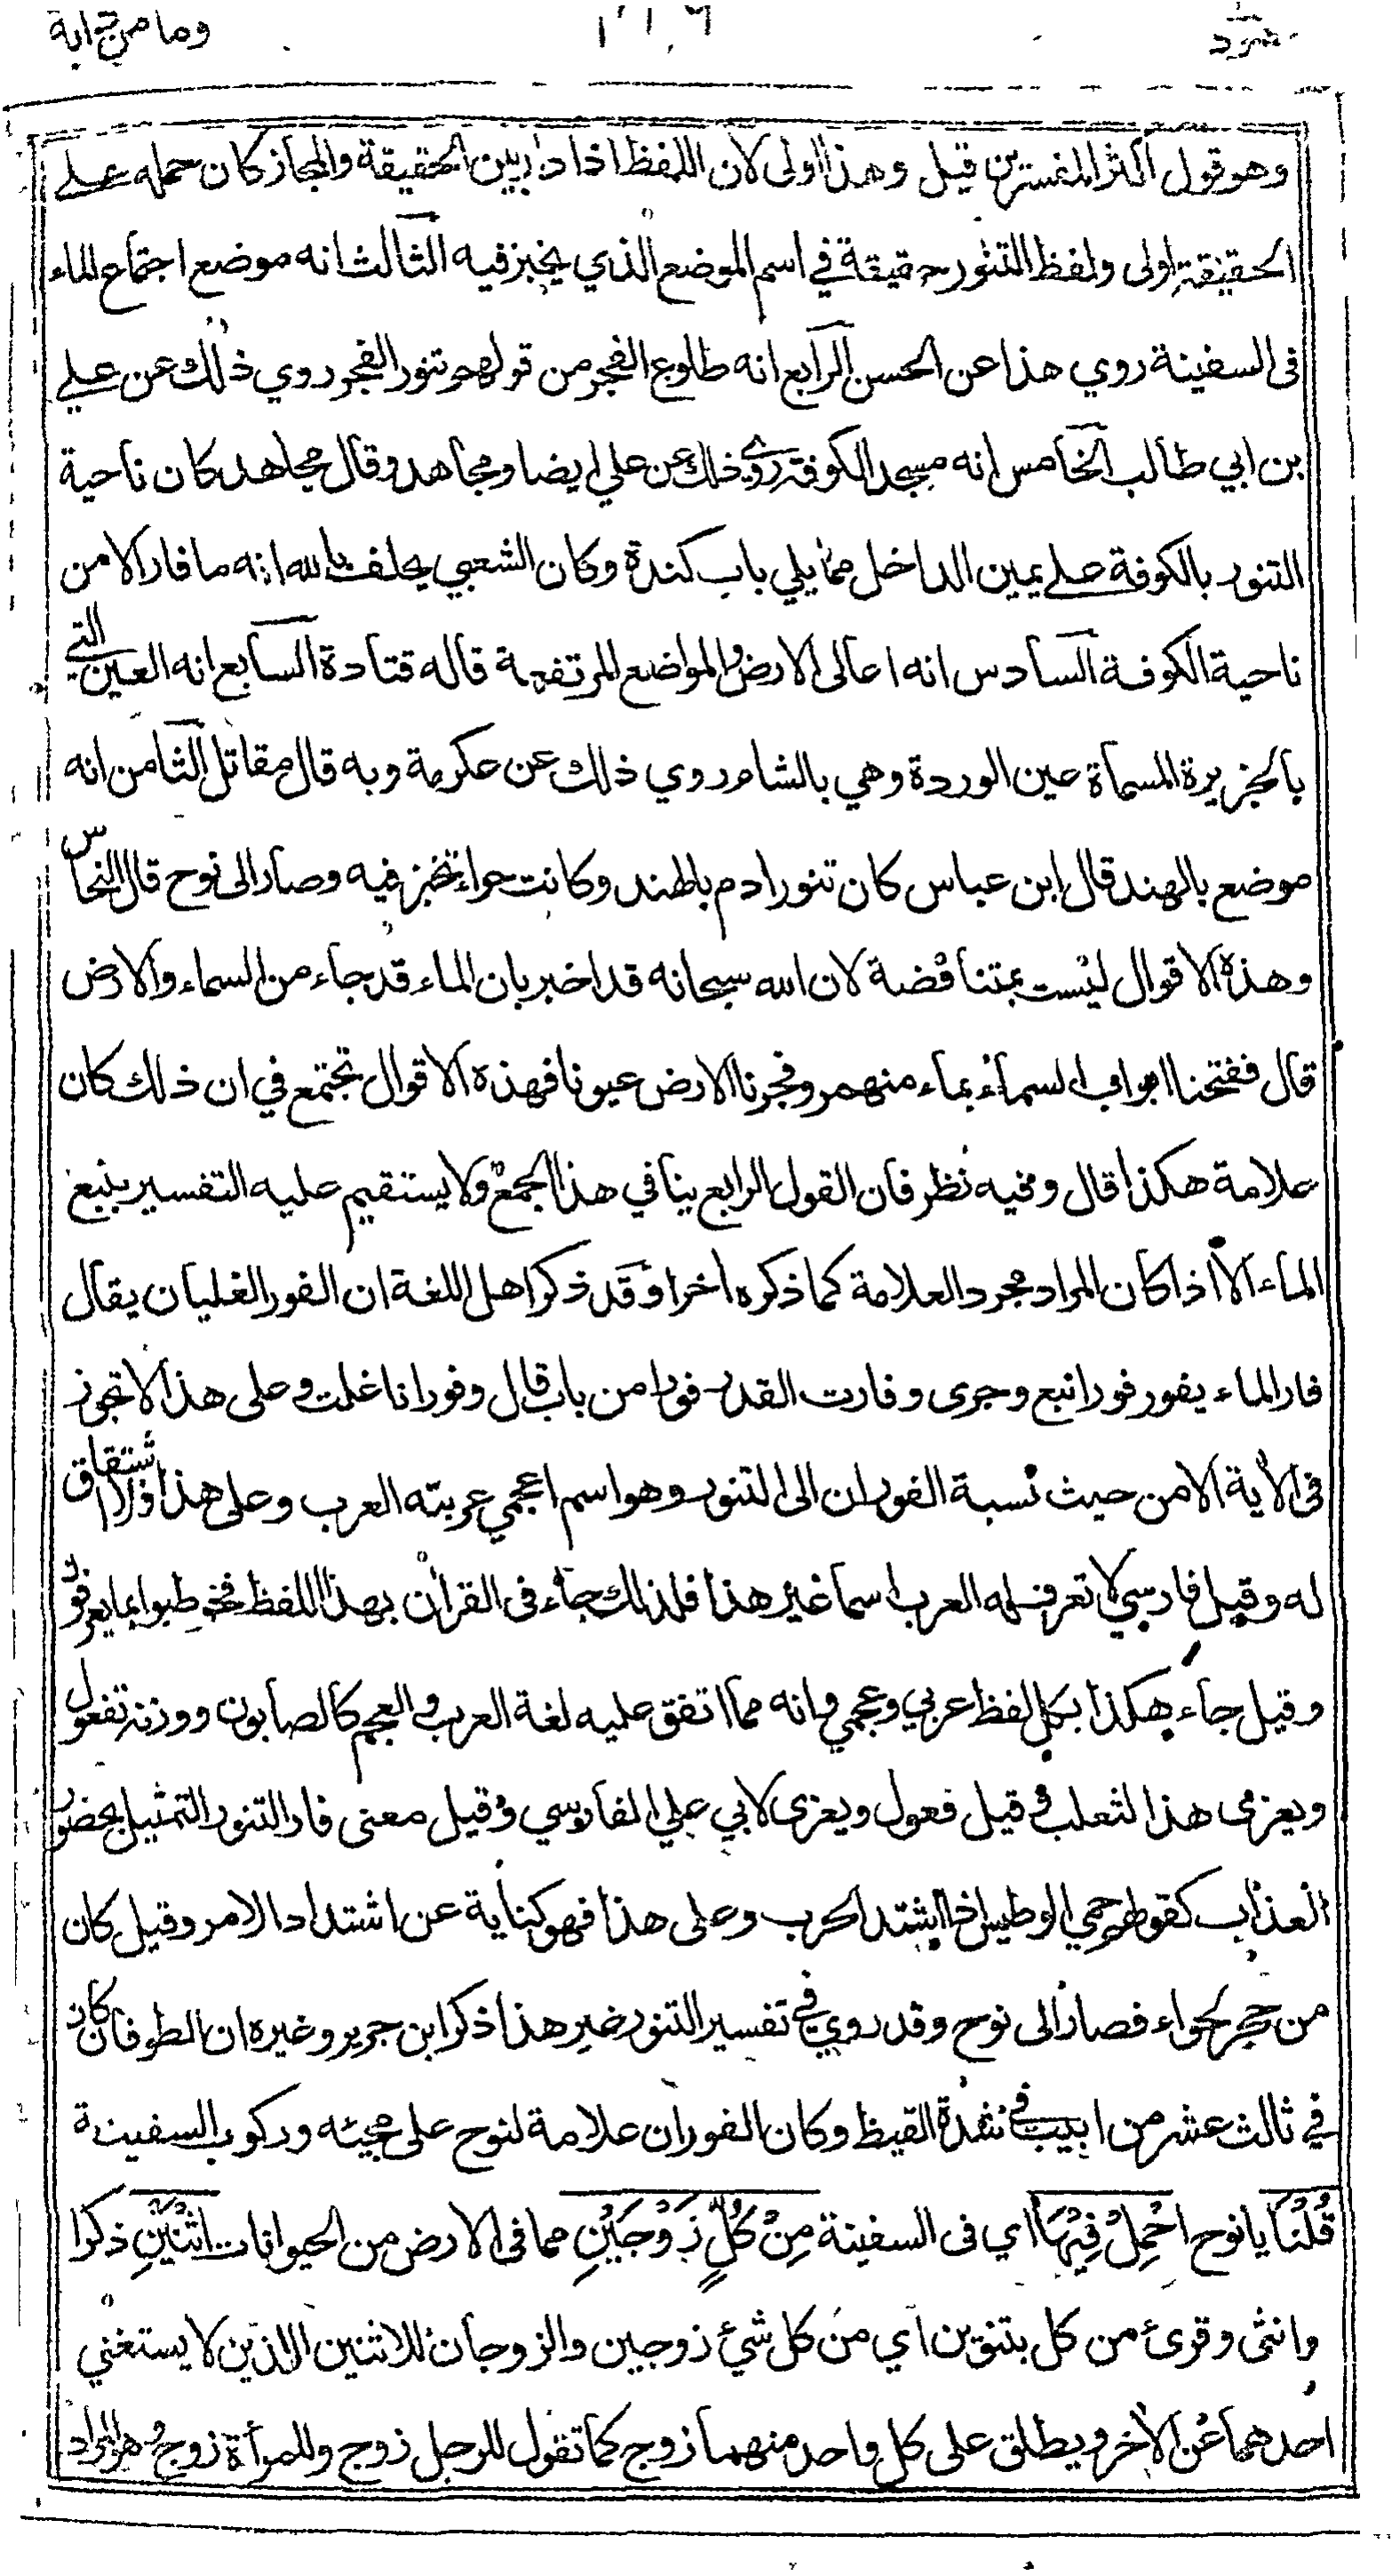 هود
وما من دابة
وهو قول اكثر المفسرين قيل وهذا اولى لان اللفظ اذا دار بين الحقيقة والمجاز كان حمله على
الحقيقة اولى ولفظ التنور حقيقة في اسم الموضع الذي يخبز فيه الثالث انه موضع اجتماع الماء
فى السفينة روي هذا عن الحسن الرابع انه طلوع الفجر من قولهم تنور الفجر روي ذلك عن علي
بن ابي طالب الخامس انه مسجد الكوفة روي ذلك عن علي ايضا ومجاهد وقال مجاهد كان ناحية
التنور بالكوفة على يمين الداخل مما يلي باب كندة وكان الشعبي يحلف بالله انه ما فار الا من
ناحية الكوفة السادس انه اعالى الارض والمواضع المرتفعة قاله قتادة السابع انه العين التي
بالجزيرة المسماة عين الوردة وهي بالشام روي ذلك عن عكرمة وبه قال مقاتل الثامن انه
موضع بالهند قال ابن عباس كان تنور ادم بالهند وكانت حواء تخبز فيه وصار الى نوح قال النحاس
وهذه الاقوال ليست بمتناقضة لان الله سبحانه قد اخبر بان الماء قد جاء من السماء والارض
قال ففتحنا ابواب السماء بماء منهمر وفجرنا الارض عيونا فهذه الاقوال تجتمع في ان ذلك كان
علامة هكذا قال وفيه نظر فان القول الرابع ينافي هذا الجمع ولا يستقيم عليه التفسير بنبع
الماء الا اذا كان المراد مجرد العلامة كما ذكره اخرا وقد ذكر اهل اللغة ان الفور الغليان يقال
فار الماء يفور فورا نبع وجرى وفارت القدر فورا من باب قال وفورانا غلت وعلى هذا لا تجوز
فى الآية الا من حيث نسبة الفوران الى التنور وهو اسم اعجمي عربته العرب وعلى هذا فلا اشتقاق
له وقيل فارسي لا تعرف له العرب اسما غير هذا فلذلك جاء فى القرآن بهذا اللفظ فخوطبوا بما يعرفون
وقيل جاء هكذا بكل لفظ عربي وعجمي وانه مما اتفق عليه لغة العرب والعجم كالصابون ووزنه تفعول
ويعزى هذا لثعلب وقيل فعول ويعزى لابي علي الفارسي وقيل معنى فار التنور التمثيل بحضور
العذاب كقولهم حمي الوطيس اذا اشتد الحرب وعلى هذا فهو كناية عن اشتداد الامر وقيل كان
من حجر لحواء فصار الى نوح وقد روي في تفسير التنور غير هذا ذكر ابن جرير وغيره ان الطوفان كان
في ثالث عشر من ابيب في شدة القيظ وكان الفوران علامة لنوح على مجيئه وركوب السفينة
قُلْنَا يا نوح احْمِلْ فِيْهَا اي فى السفينة مِنْ كُلٍّ زَوْجَيْنِ مما فى الارض من الحيوانات اثْنَيْنِ ذكرا
وانثى وقرئ من كل بتنوين اي من كل شئ زوجين والزوجان للاثنين اللذين لا يستغني
احدهما عن الآخر ويطلق على كل واحد منهما زوج كما تقول للرجل زوج وللمرأة زوج هو المراد